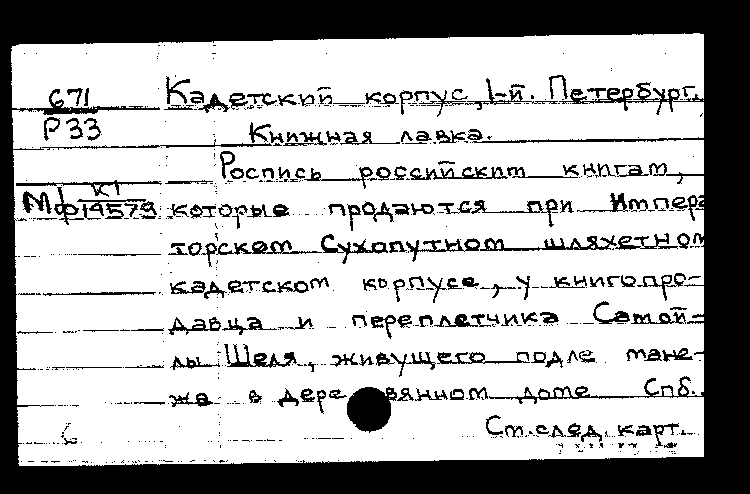 671 Кадетский корпус, 1-й. Петербург.
Р33 Книжная лавка.
Роспись российским книгам,
Мф К1/14579 которые продаются при Импера
торском Сухопутном шляхетном
кадетском корпусе, у книгопро-
давца и переплетчика Самой-
лы Шеля, живущего подле мане-
жа в деревянном доме Спб.
См. след. карт.